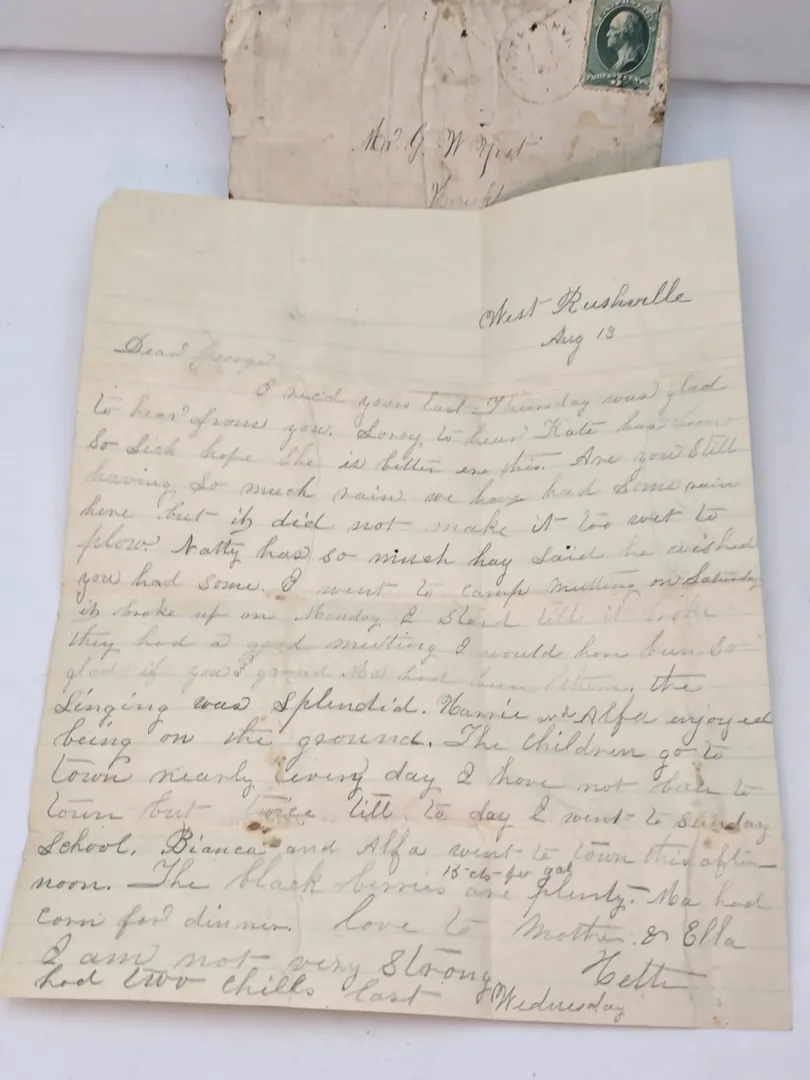 THREE CENTS
Mr. G. W. Yost
West Rushville
Aug 13
Dear George
I rec'd yours last Thursday was glad
to hear from you. Sorry to hear Kate has been
so sick hope she is better ere this. Are you still
having so much rain we have had some rain
here but it did not make it too wet to
plow. Natty has so much hay said he wished
you had some. I went to camp meeting on Saturday
it broke up on Monday I staid till it broke
they had a good meeting I would have been so
glad if you & grand Ma had been there. the
Singing was splendid. Nannie and Alfa enjoyed
being on the ground. The children go to
town nearly every day I have not been to
town but twice till to day I went to Sunday
School. Bianca and Alfa went to town this after
noon. The black berries are plenty. Ma had
15 cts per gal
corn for dinner. love to Mother & Ella
I am not very strong Hettie
had two chills last Wednesday